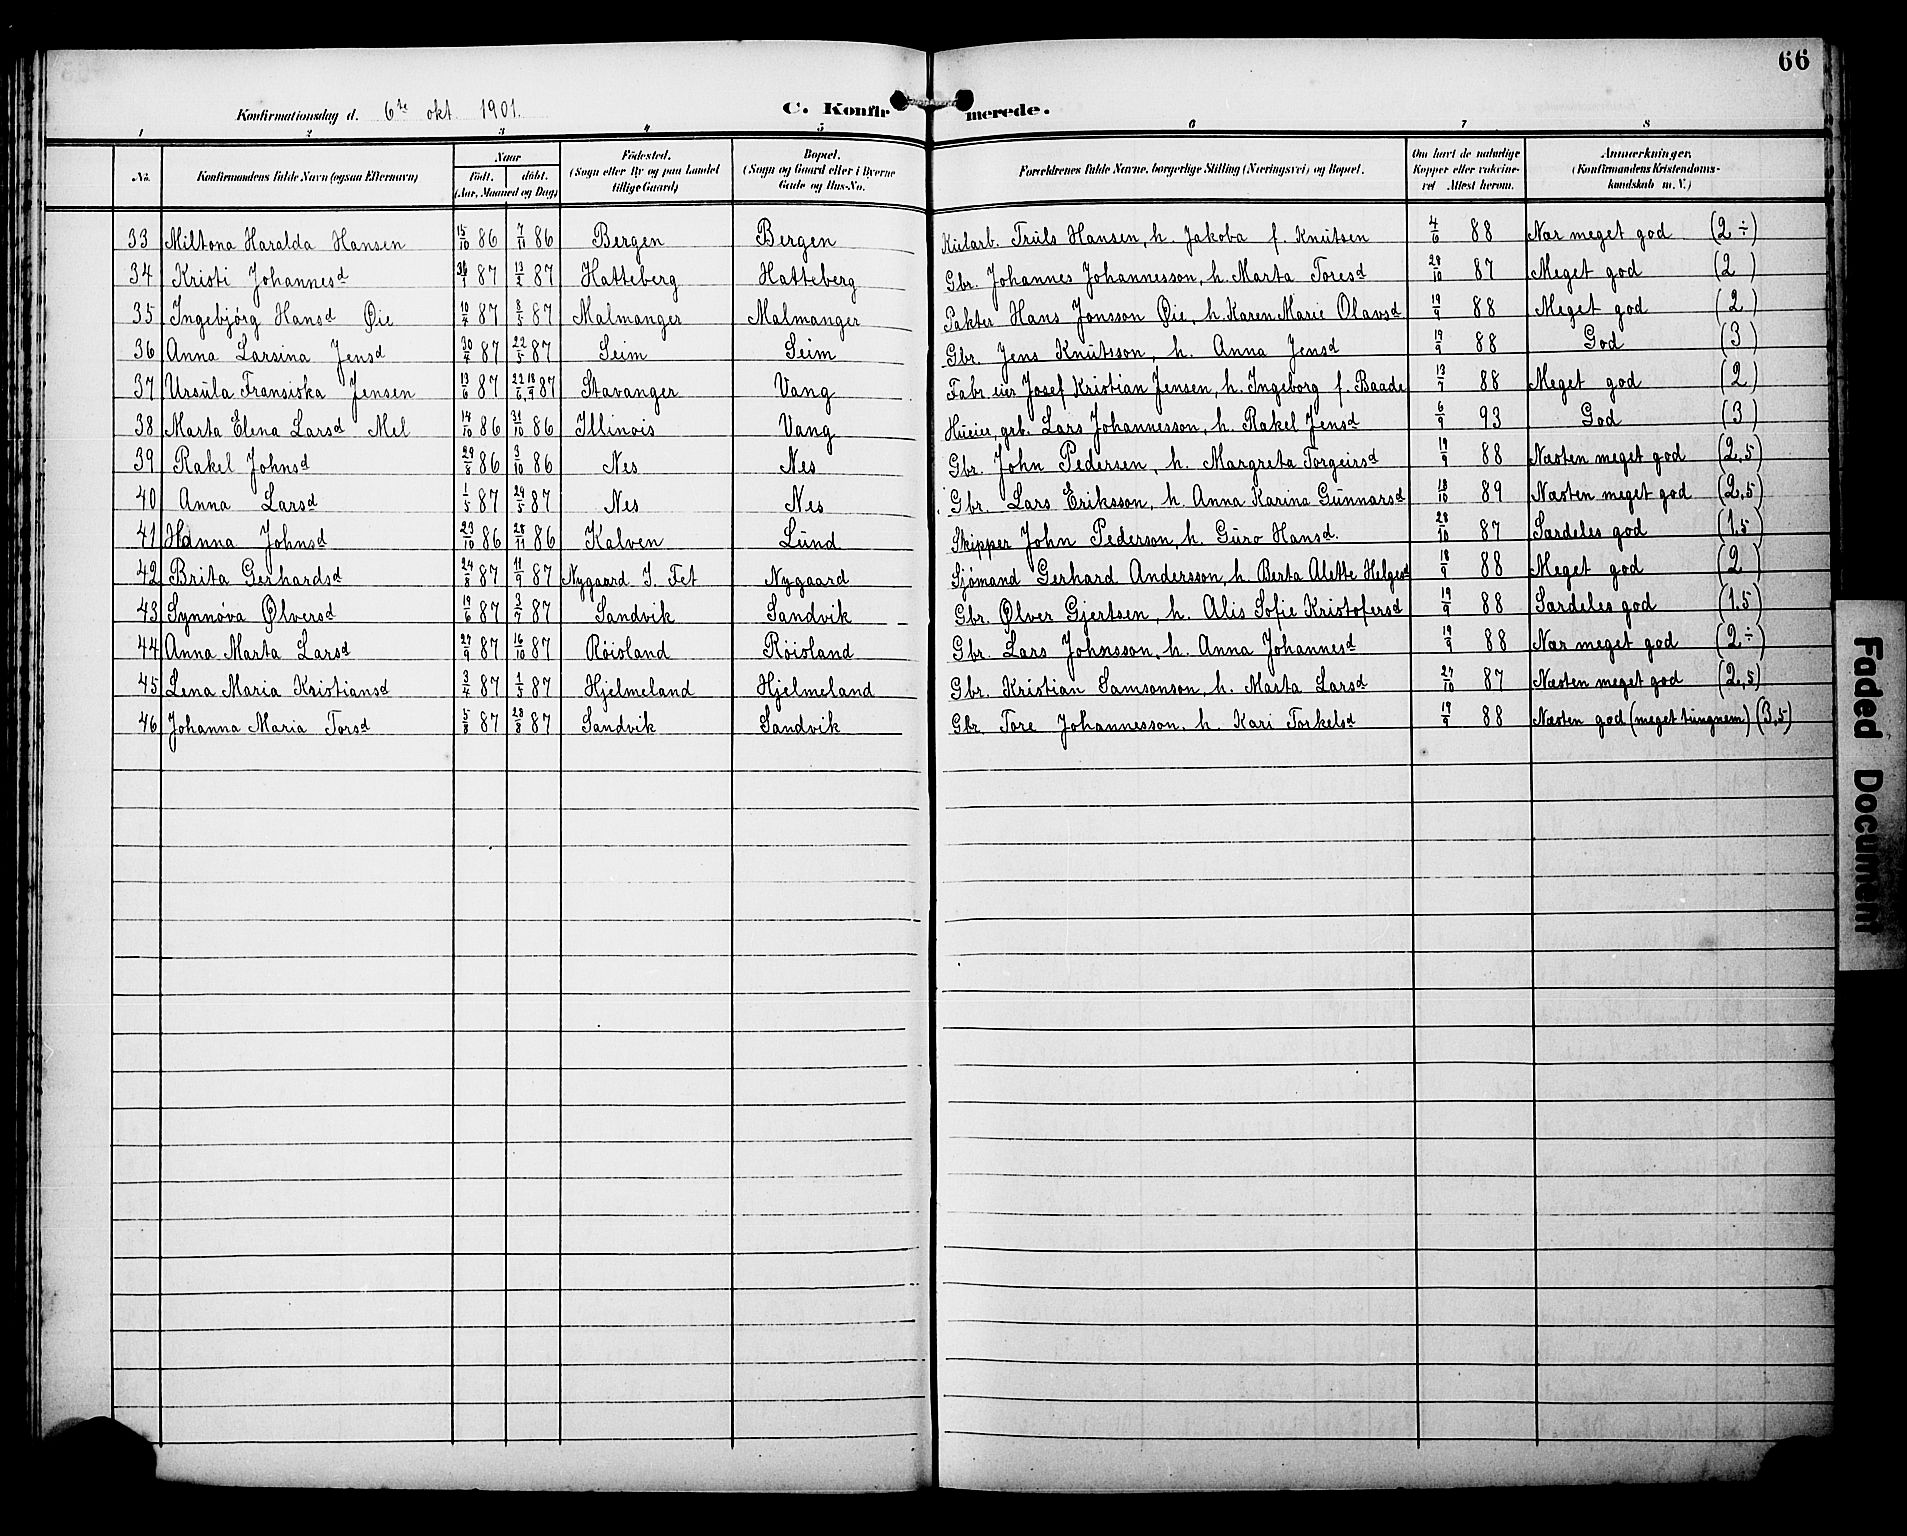 66
Konfirmationsdag d. 6te okt 1901.
C. Konfirmerede.
1 2 3 4 5 6 7 8
No. Konfirmandens fulde Navn (ogsaa Efternavn) Naar Født. døbt. (Aar, Maaned og Dag) Fødested. (Sogn eller By og paa Landet tillige Gaard) Bopæl. (Sogn og Gaard eller i Byerne Gade og Hus-No. Forældrenes fulde Navne, borgerlige Stilling (Næringsvei) og Bopæl. Om havt de naturlige Kopper eller vakcineret Attest herom. Anmærkninger. (Konfirmandens Kristendomskundskab m. V.)
33 Miltona Haralda Hansen 15/10 86 7/11 86 Bergen Bergen Truls Hansen, h. Jakoba f. Knutsen 4/6 88 Nær meget god (2÷)
34 Kristi Johannesd 87 13/2 87 Hatteberg Hatteberg Gbr. Johannes Johannesson, h. Marta Toresd 28/10 87 Meget god (2)
35 Ingebjørg Hansd Øie 10/4 87 8/5 87 Malmanger Malmanger Pakter Hans Jonsson Øie, h. Karen Marie Olavsd 19/9 88 Meget god (2)
36 Anna Larsina Jensd 30/4 87 22/5 87 Seim Seim Gbr. Jens Knutsson, h. Anna Jensd 19/9 88 God (3)
37 Ursula Fransiska Jensen 13/6 87 22/6 18/9 87 Stavanger Vang Fabr. eier Josef Kristian Jensen, h. Ingeborg f. Baade 13/9 88 Meget god (2)
38 Marta Elena Larsd Mel 14/10 86 31/10 86 Illinois Vang Lars Johannesson, h. Rakel Jensd 6/9 93 God (3)
39 Rakel Johnsd 29/8 86 3/10 86 Nes Nes Gbr. John Pedersen, h. Margreta Torgeirsd 19/9 88 Næsten meget god (2,5)
40 Anna Larsd 1/5 87 29/5 87 Nes Nes Gbr. Lars Eriksson, h. Anna Karina Gunnarsd 18/10 89 Næsten meget god (2,5)
41 Hanna Johnsd 23/10 86 28/11 86 Kalven Lund Skipper John Pederson, h. Guro Hansd. 28/10 87 Særdeles god (1,5)
42 Brita Gerhardsd 24/8 87 11/9 87 Nygaard I. Fet Nygaard Sjømand Gerhard Andersson, h. Berta Alette Helgesd 18/9 88 Meget god (2)
43 Synnøva Ølversd 19/6 87 3/7 87 Sandvik Sandvik Gbr. Ølver Gjertsen, h. Alis Sofie Kristofersd 19/9 88 Særdeles god (1,5)
44 Anna Marta Larsd 27/9 87 16/10 87 Røisland Røisland Gbr. Lars Johnsson, h. Anna Johannesd 19/9 88 Nær meget god (2÷)
45 Lena Maria Kristiansd 3/4 87 1/5 87 Hjelmeland Hjelmeland Gbr. Kristian Samsonson, h. Marta Larsd 27/10 87 Næsten meget god (2,5)
46 Johanna Maria Torsd 5/8 87 28/8 87 Sandvik Sandvik Gbr. Tore Johannesson, h. Kari Torkelsd 19/9 88 Næsten god (meget tungnem) (3,5)
Faded Document